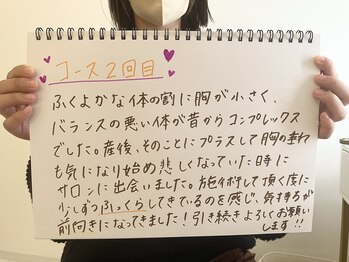 コース2回目
ふくよかな体の割に胸が小さく、
バランスの悪い体が昔からコンプレックス
でした。産後、そのことにプラスして胸の垂れ
も気になり始め悲しくなっていた時に
サロンに出会いました。施術して頂く度に
少しずつふっくらしてきているのを感じ、気持ちが
前向きになってきました!引き続きよろしくお願い
します!!